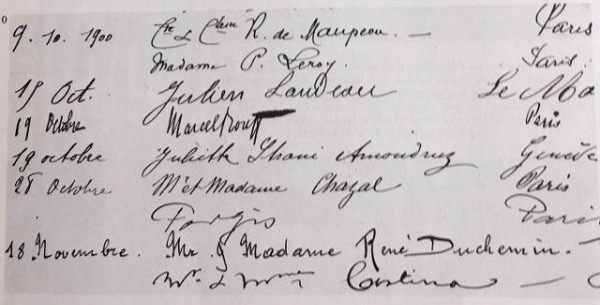 9. 10. 1900 Cte & Ctesse R. de Maupeou. — Paris
Madame P. Leroy. Paris.
15 Oct. Julien Landeau Le Ma
19 Octobre Marcel Proust Paris
19 octobre Juliette Amoudruz Genève
28 Octobre Mr et Madame Chazal Paris
Forgis Paris
18 Novembre. Mr & Madame René Duchemin.
Mr & Mme Castina —